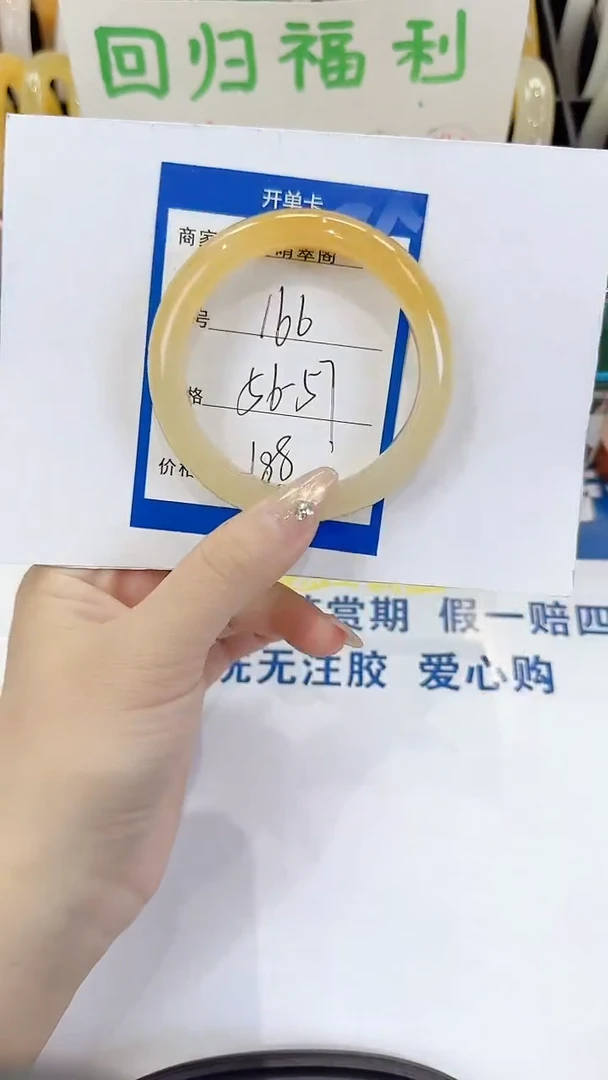 回归福利
开单卡
商家 萃阁
号 166
格 56-57
价格 188
赏期 假一赔四
无注胶 爱心购